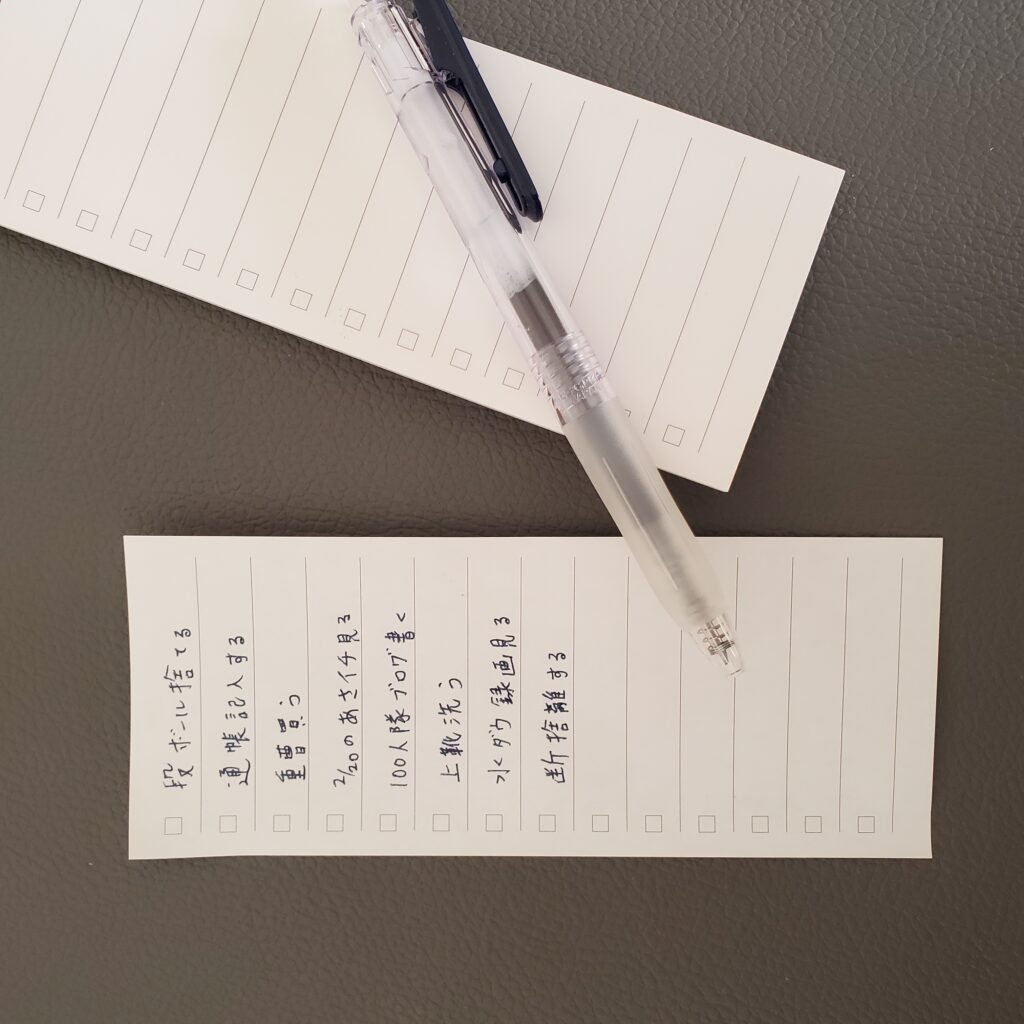 段ボール捨てる
通帳記入する
重曹買う
2/20のあさイチ見る
100人隊ブログ書く
上靴洗う
水ダウ録画見る
断捨離する